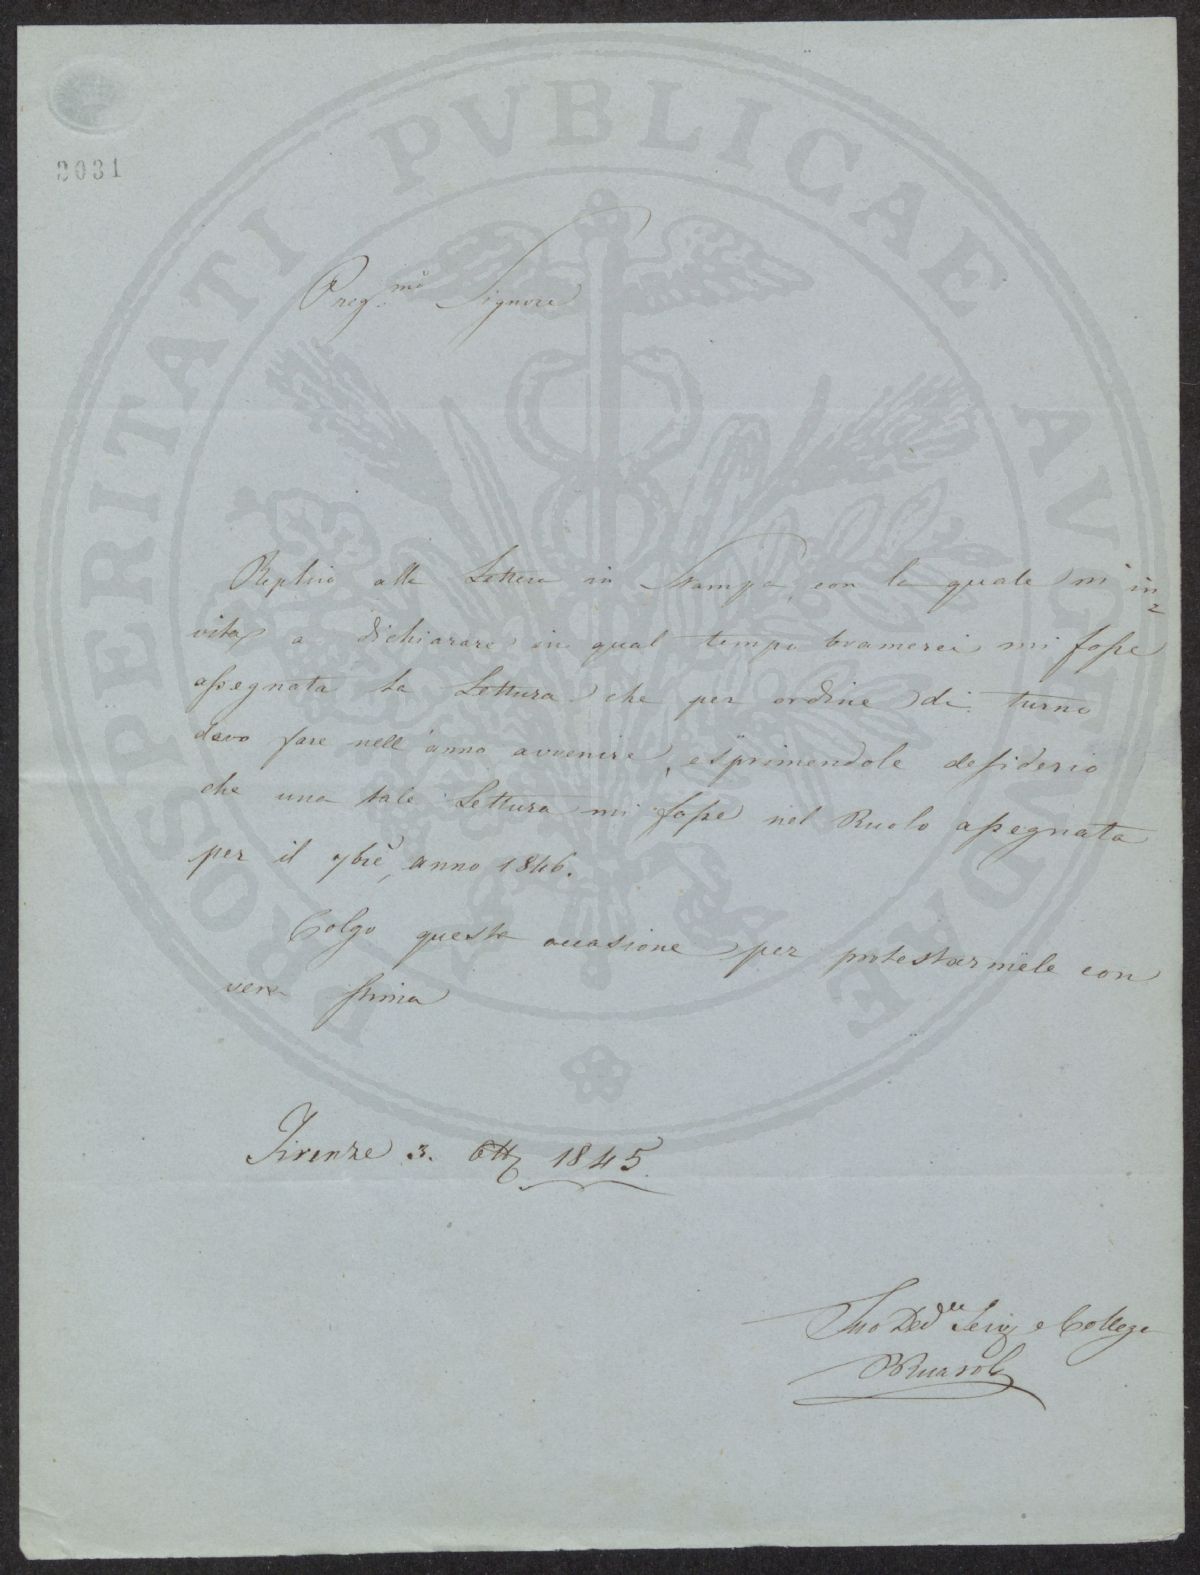 PROSPERITATI PVBLICAE AVGENDAE
3031
Preg.mo Signore
Replico alla Lettera in Stampa, con la quale m' in=
vita a dichiarare in qual tempo bramerei mi fosse
assegnata la Lettura che per ordine di turno
devo fare nell'anno avvenire, esprimendole desiderio
che una tale Lettura mi fosse nel Ruolo assegnata
per il 9bre, anno 1846.
Colgo questa occasione per protestarmele con
vera stima
Firenze 3. Ott. 1845.
Suo Dev. Serv. e Collega